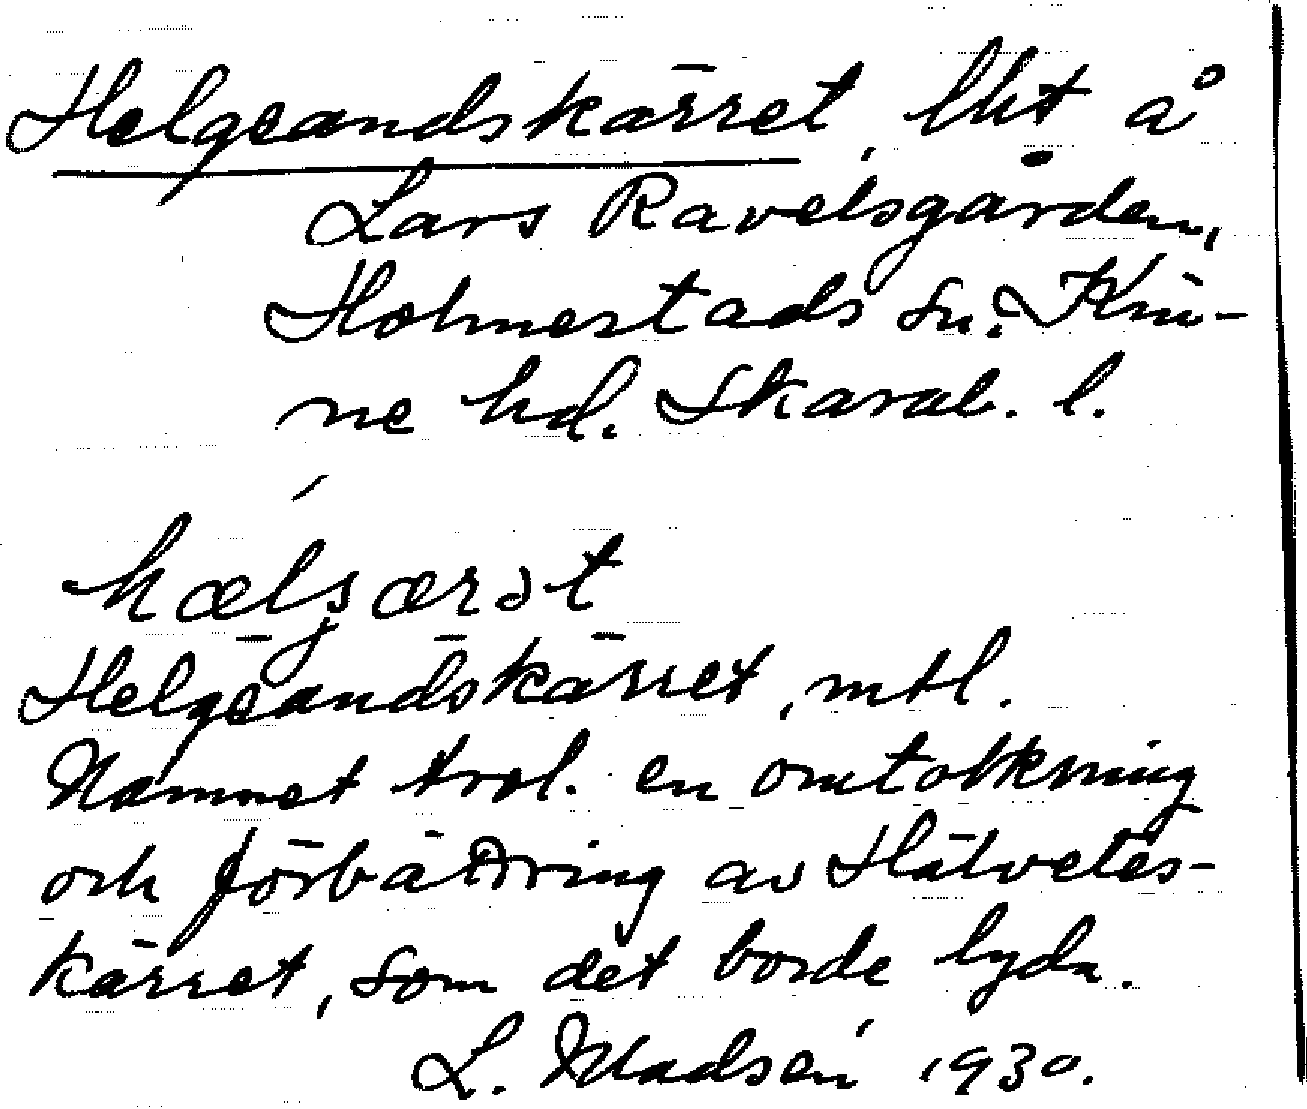 Helgeandskärret, lht å
Lars Ravelsgården,
Holmestads sn. Kin-
ne hd. Skarab. l.
hælsærət
Helgeandskärret, mtl.
Namnet trol. en omtolkning
och förbättring av Hälvetes-
kärret, som det borde lyda.
L. Madsén 1930.